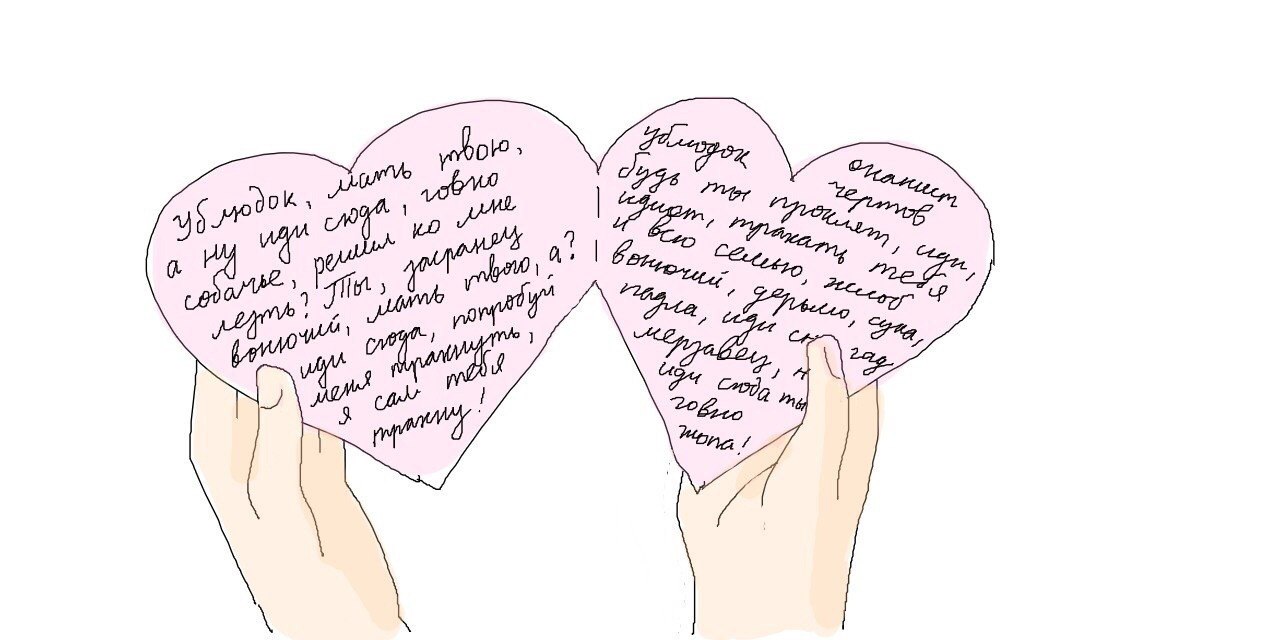 Ублюдок, мать твою,
а ну иди сюда, говно
собачье, решил ко мне
лезть? Ты, засранец
вонючий, мать твою, а?
иди сюда, попробуй
меня трахнуть,
я сам тебя
трахну!
ублюдок
онанист
чертов
будь ты проклят, иди,
идиот, трахать тебя
и всю семью, жлоб
вонючий, дерьмо, сука,
падла, иди
мерзавец, гад
иди сюда ты
говно
жопа!